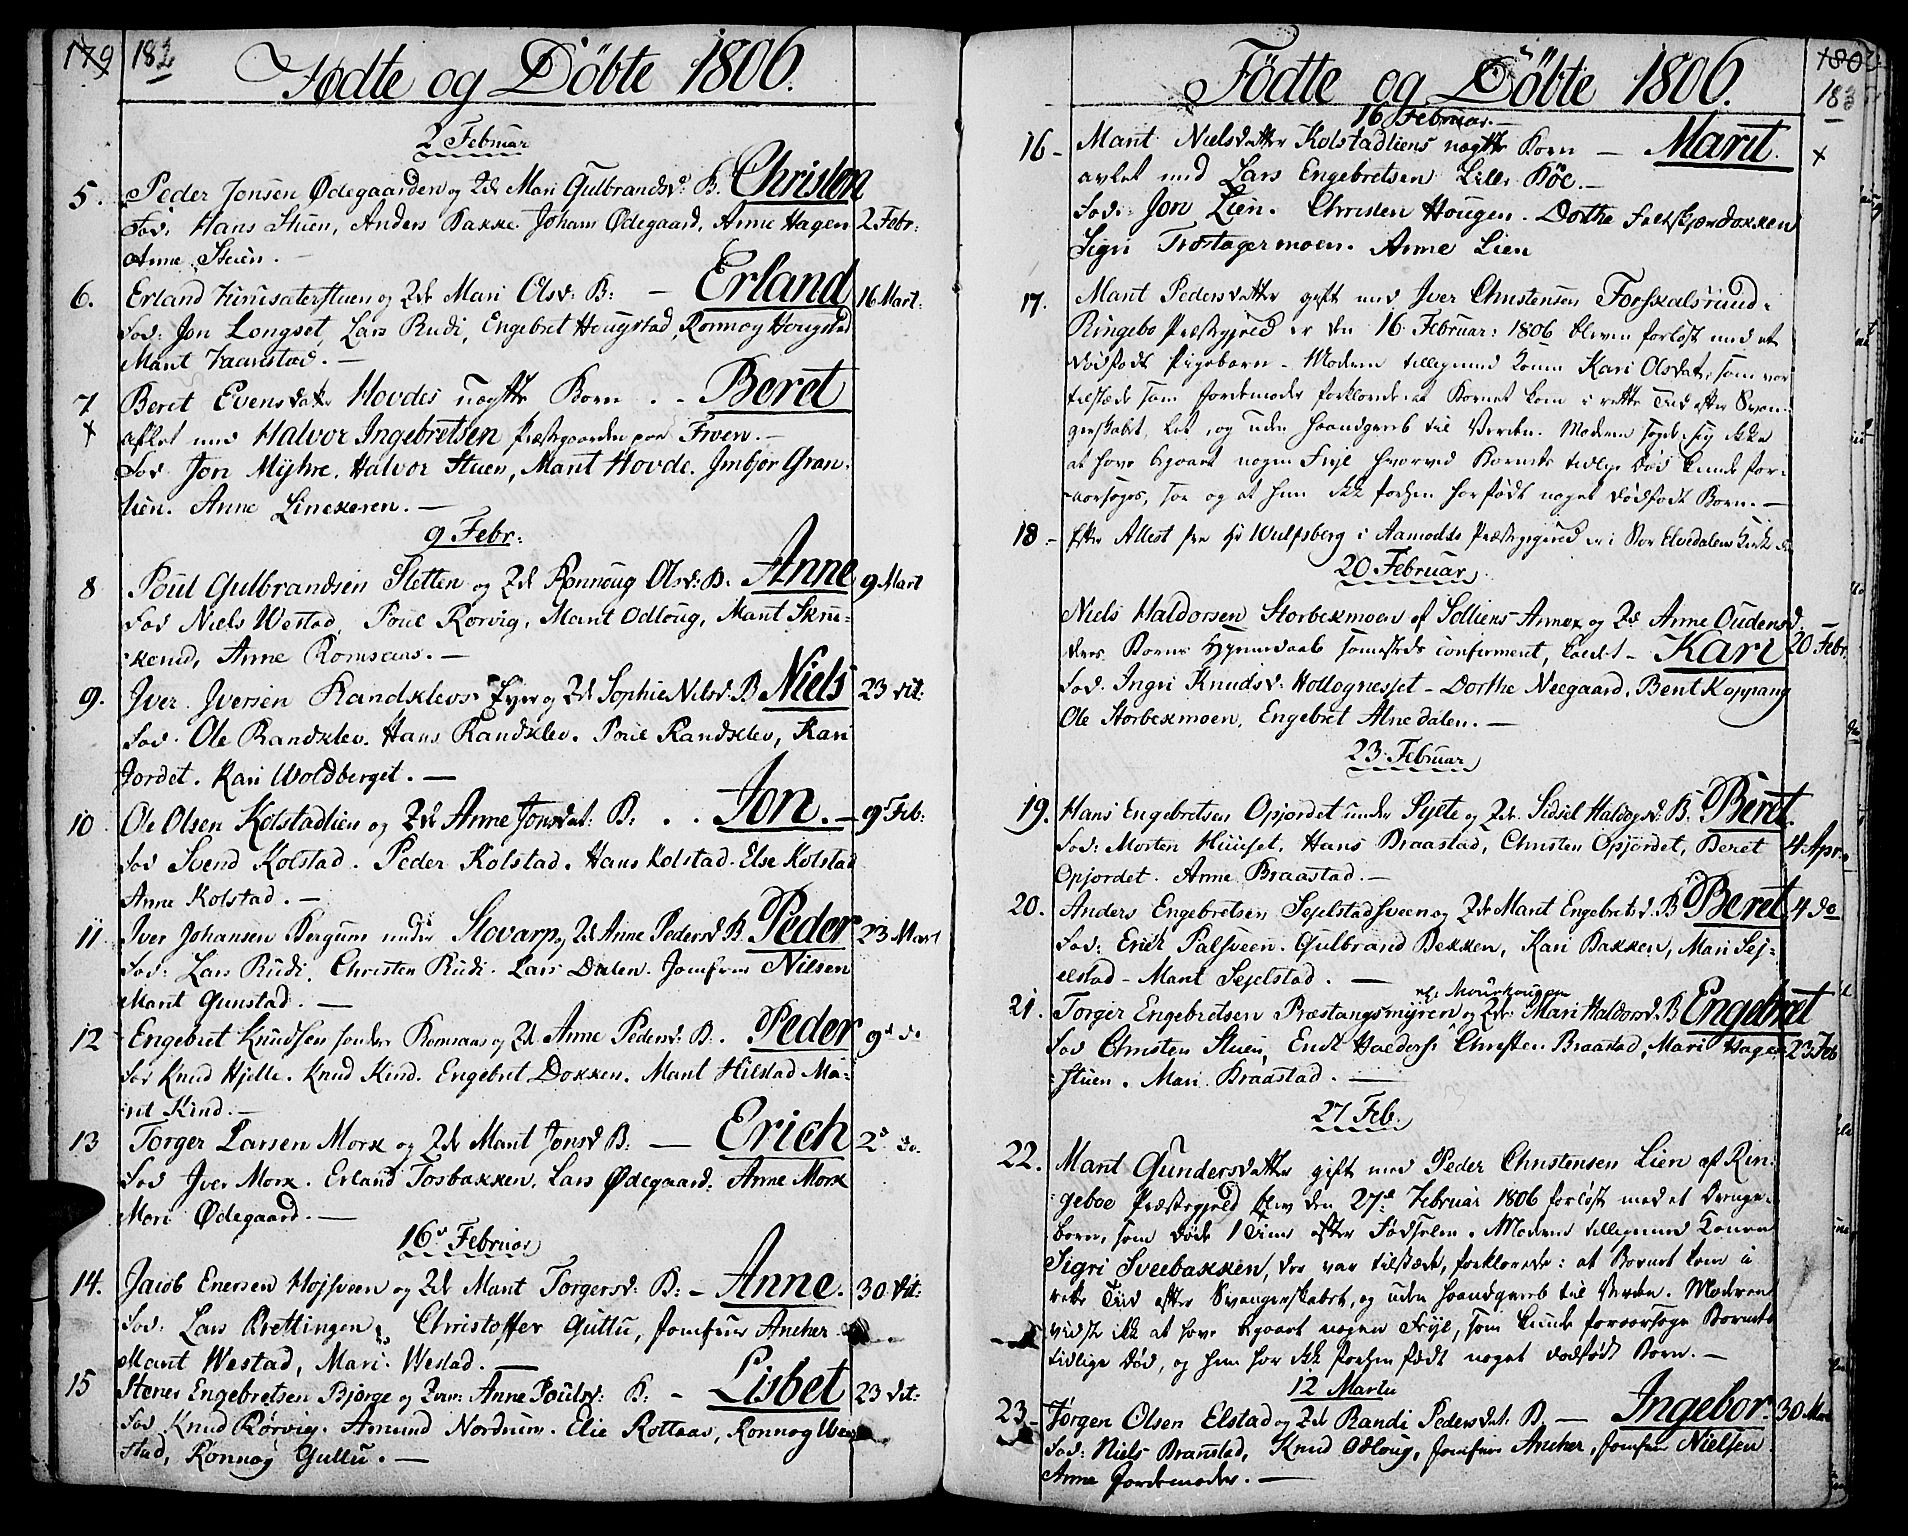 179 182
Födte og Döbte 1806.
2 Februar
5. Peder Jonsen Ødegaarden og Zde Mari Gulbrandsd: B. Christen
Fad: Hans Stuen, Anders Bakke. Johans Ødegaard, Anne Hagen 2 Febr:
Anne Stuen. —
6. Erland og Zde Mari Olsd: B: — Erland 16 Mart:
Fad: Jon Longset, Lars Rudi, Engebret Hougstad, Ronnog Hougstad
Marit Haarstad. —
7 Beret Evensdatr Hovdes uægte Born . - Beret
x aflet med Halvor Ingebretsen Præstegaarden paa Froen. —
Fad Jon Myhre, Halvor Stuen, Marit Hovde. Imbjor Gran-
lien. Anne Linekeren. —
9 Febr:
8 Poul Gulbrandsen Sletten og Zde Ronnoug Olsd: B: Anne 9 Mart
Fad Niels Westad, Poul Rorvig, Marit Odloug, Marit Skru-
kerud, Anne Romsaas. —
9. Iver Iversen Randklevs Eyer og Zde Sophie Nilsd: B Niels 23 dit:
Fad. Ole Randklev. Hans Randklev. Poul Randklev, Kari
Jordet. Kari Woldberget. —
10 Ole Olsen Kolstadlien og Zde Anne Jonsdat: B: . . Jon. — 9 Feb:
Fad Svend Kolstad. Peder Kolstad. Hans Kolstad. Else Kolstad
Anne Kolstad. —
11 Iver Johansen Bergum under Slovarp og Zde Anne Pedersd B. Peder 23 Mart
Fad: Lars Rudi. Christen Rudi. Lars Dalen. Jomfrue Nilsen
Marit Gunstad. —
12 Engebret Knudsen sondre Romsaas og Zde Anne Pedersd: B: . Peder 9d do
Fad Knud Hjelle. Knud Kind. Engebret Dokken. Marit Hilstad Ma-
rit Kind. —
13 Torger Larsen Mork og Zde Marit Jonsd B: — Erich 2d do.
Fad Iver Mork. Erland Fosbakken, Lars Ødegaard: Anne Mork
Mari Ødegaard. —
16d Februar
14. Jacob Enersen Mojsveen og Zde Marit Torgersd: B: - Anne. 30 dit:
Fad: Lars Brettingen, Christoffer Guttu, Jomfrue Ancher
Marit Westad, Mari Westad. —
15 Stener Engebretsen Bjørge og Zde: Anne Poulsd: B: - Lisbet 23 dit:
Fad Knud Rørvig. Amund Nordrum. Elie Rottaas, Ronnog We-
stad, Ronnog Guttu. —
Födte og Döbte 1806. 180
183
16 Februar. —
16 - Marit Nielsdatter Kolstadliens uægte Born — Marit. x
avlet med Lars Engebretsen Lille Böe. —
Fad: Jon Lien. Christen Hougen. Dorthe Feltskjærdokken
Sigri Trostagermoen. Anne Lien
17. Marit Pedersdatter gift med Iver Christensen Forskalsrud
Ringebo Præstegield er den 16 Februar: 1806 bleven forløst med et
dødfødt Pigebarn - Moderen tilligemed Konen Kari Olsdat, som var
tilstæde som Jordemoder forklarede at Barnet kom i rette Tid efter Svan-
gerskabet, let, og uden Haandgreb til Verden. Moderen sagde sig ikke
at have begaaet nogen Feyl hvorved Barnets tidlige Død kunde for-
aarsages, saa og at hun ikke forhen har født noget dødfødt Barn. —
18 - Efter Attest fra Hr Wulfsberg i Aamodts Præstegield er i Stor Elvedalens Kirke den
20 Februar.
Niels Haldorsen Storbekmoen af Solliens Annex og Zde Anne Oudensd.
deres Borns Hjemmedaab sammesteds confirmeret, kaldet - Kari 20 Febr.
Fad: Ingri Knudsd: Hollognesset - Dorthe Neegaard, Bent Koppang
Ole Storbekmoen, Engebret Alnedalen. —
23 Februar
19. Hans Engebretsen Opjordet under Sylte og Zde Sidsel Haldorsd: B: Beret.
Fad: Morten Huuset, Hans Braastad, Christen Opjordet, Beret 4 Apr:
Opjordet. Anne Braastad. —
20. Anders Engebretsen Sejelstadsveen og Zde Marit Engebretsd. B Beret 4 do
Fad: Erich Palsveen. Gulbrand Bekken, Kari Bakken, Mari Sej-
elstad - Marit Sejelstad. —
21. Torger Engebretsen Præstangsmyren og Zde: Mari Haldorsd. B Engebret
Fad Christen Stuen, Christen Braastad, Mari Hagen 23 Feb
Stuen. Mari Braastad. —
27 Feb.
22. Marit Gundersdatter gift med Peder Christensen Lien af Rin-
geboe Præstegjeld blev den 27de Februar 1806 forløst med et Drenge-
barn, som døde 1 Time efter Fødselen. Moderen tilligemed Konen
Sigri Sveebakken, der var tilstæde, forklarede: at Barnet kom i
rette Tid efter Svangerskabet, og uden Haandgreb til Verden. Moderen
vidste ikke at have begaaet nogen Feyl, som kunde foraarsage Barnets
tidlige Død, og hun har ikke forhen født noget dødfødt Barn. —
12 Martii
23 - Jørgen Olsen Elstad og Zde Randi Pedersdat: B. — Ingebor. 30 Mart
Fad: Niels Branstad, Knud Odloug, Jomfrue Ancher, Jomfrue Nielsen.
Anne Jordemoder. —